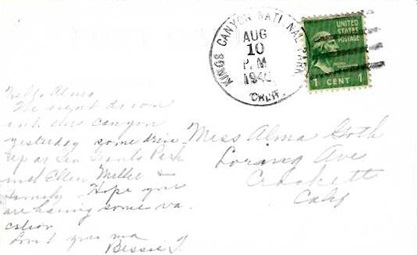 KINGS CANYON NAT'L PARK
AUG
10
P.M
CALIF.
UNITED
STATES
POSTAGE
1 CENT 1
Hello Alma
We right down
into this canyon
yesterday some drive
up
met Ellen Miller &
family Hope you
are having some va
cation
Bessie
Miss Alma Goth
Loring Ave
Crockett
Calif